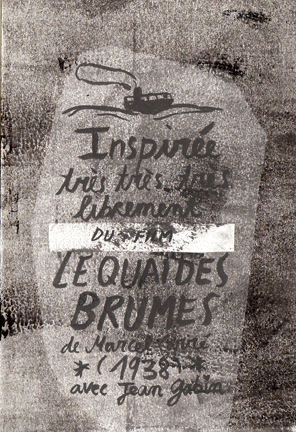 Inspirée
très très très
librement
DU FILM
LE QUAI DES
BRUMES
de Marcel Carné
* (1938) *
avec Jean Gabin